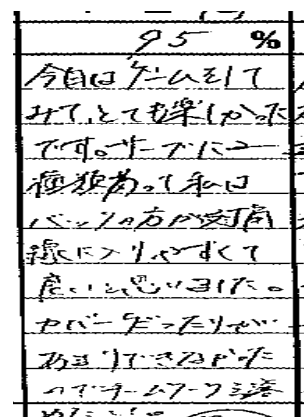 95 %
今日はゲームをして
みて、とても楽しかった
です。サーブに2
種類あって私は
バックの方が対角
線に入りやすくて
良いと思いました。
カバーだったりが
あまりできなかった
のでチームワークを